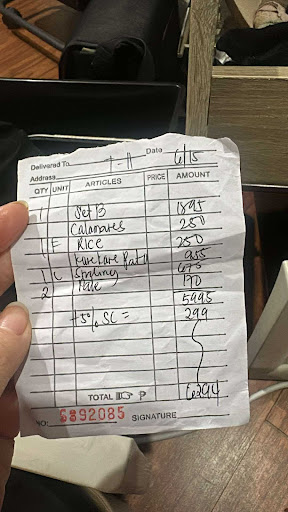 Delivered To T-11 Date 6/5
Address
QTY UNIT ARTICLES PRICE AMOUNT
1 Set B 1895
Calamares 250
1 E Rice 250
Pata 955
1 L Sinalang 675
2 170
5995
+5% SC = 299
TOTAL ☞ P 6294
NO: 6892085 SIGNATURE